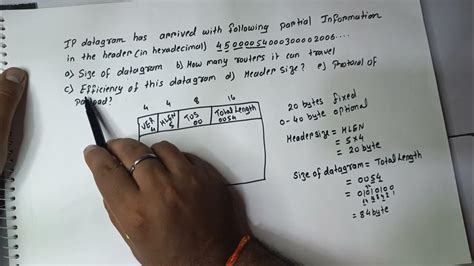 IP datagram has arrived with following partial Information
in the header (in hexadecimal) 45000054000300002006....
a) Size of datagram b) How many routers it can travel
c) Efficiency of this datagram d) Header Size? e) Protocol of
Payload?
4 4 8 16
VER HLEN TOS Total Length
4 5 00 0054
20 bytes fixed
0-40 byte optional
Header size = HLEN
= 5x4
= 20 byte
Size of datagram = Total Length
= 0054
= 01010100
= 84 byte